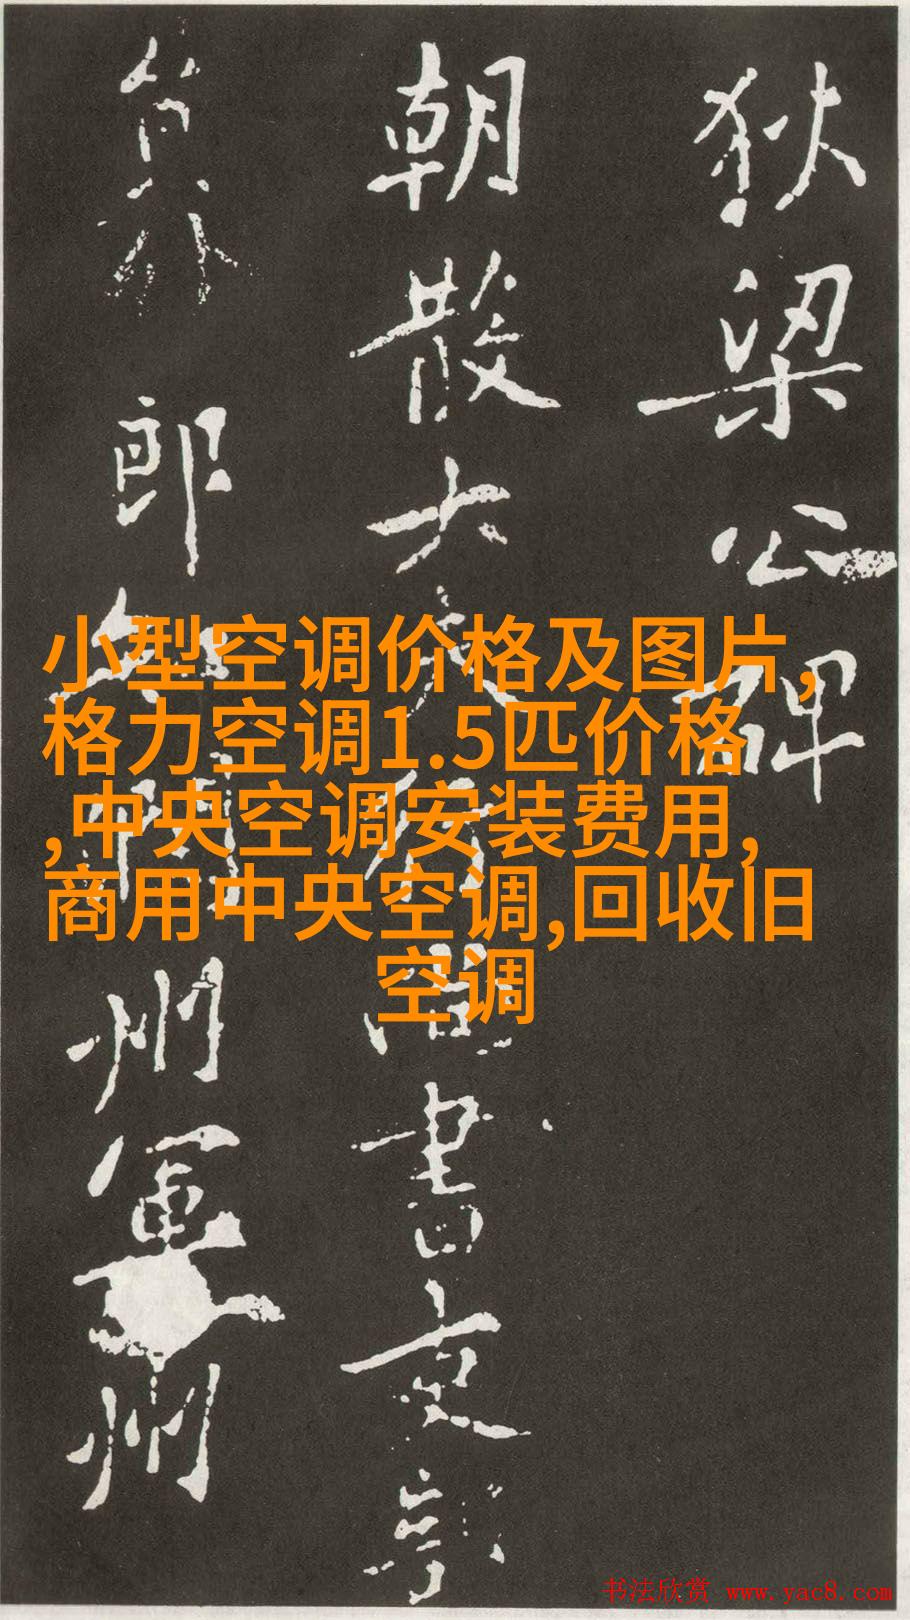 狄梁公碑
朝散大夫行尚書吏部
員外郎知潤州軍州
小型空调价格及图片,
格力空调1.5匹价格
,中央空调安装费用,
商用中央空调,回收旧
空调
书法欣赏 www.yac8.com